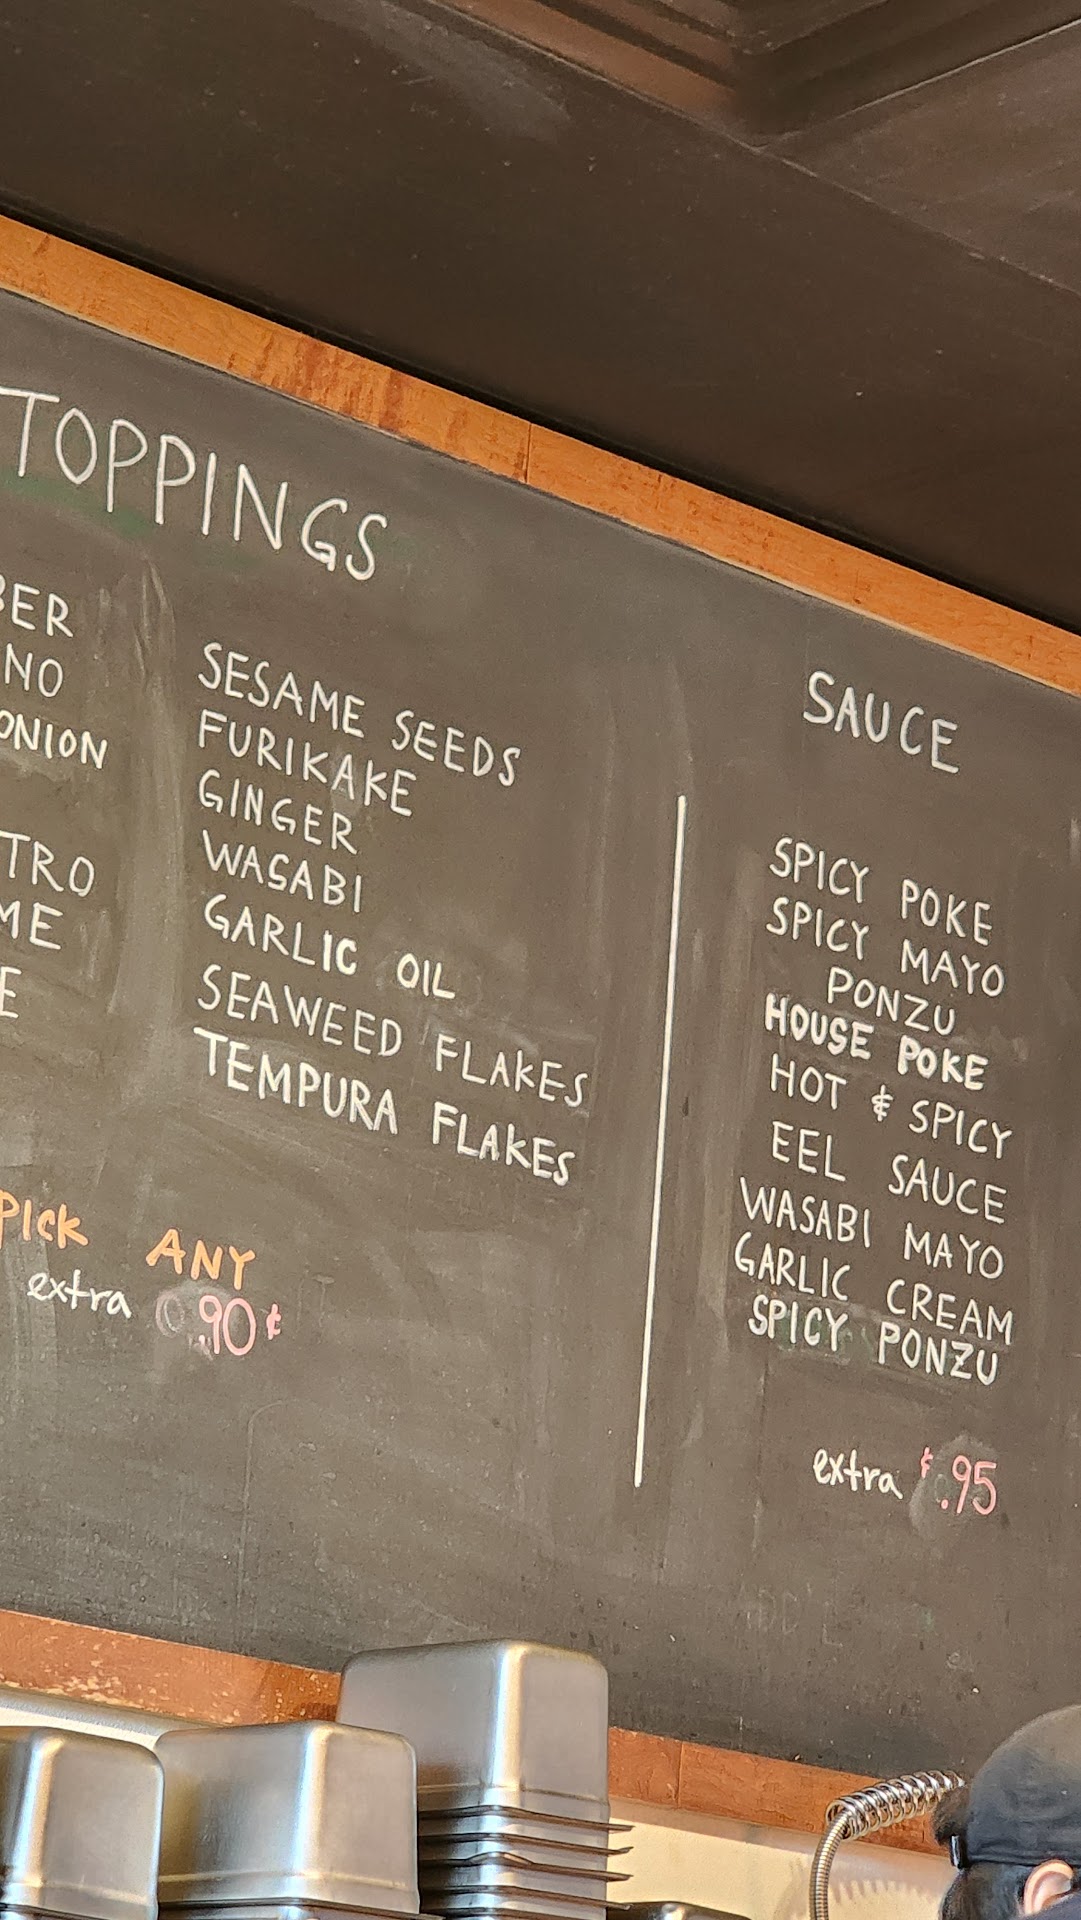 TOPPINGS
ONION
SESAME SEEDS
FURIKAKE
GINGER
WASABI
GARLIC OIL
SEAWEED FLAKES
TEMPURA FLAKES
PICK ANY
extra .90¢
SAUCE
SPICY POKE
SPICY MAYO
PONZU
HOUSE POKE
HOT & SPICY
EEL SAUCE
WASABI MAYO
GARLIC CREAM
SPICY PONZU
extra ¢.95